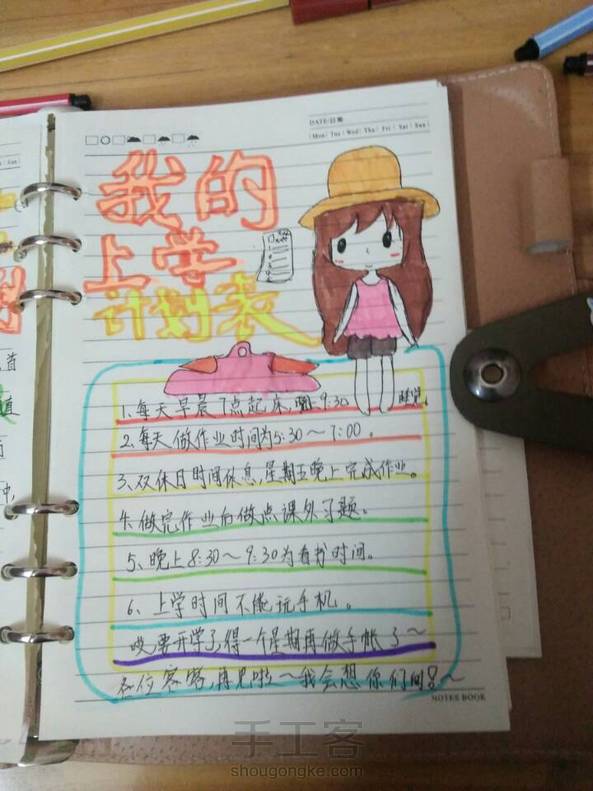 DATE/日期
Mon Tue Wed Thu Fri Sat Sun
我的
上学
计划表
1、每天早晨7点起床,晚9:30睡觉。
2、每天做作业时间为5:30～7:00。
3、双休日时间休息,星期五晚上完成作业。
4、做完作业后做点课外习题。
5、晚上8:30～9:30为看书时间。
6、上学时间不能玩手机。
哎要开学了,得一个星期再做手帐了～
各位客客,再见啦～我会想你们
NOTES BOOK
手工客
shougongke.com